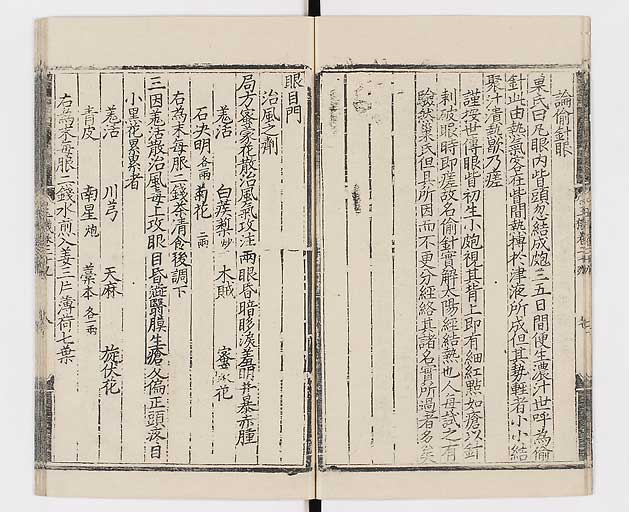 論偷針眼
巢氏曰凡眼內眥頭忽結成皰三五日間便生濃汁世呼為偷
針此由熱氣客在眥間熱搏於津液所成但其勢輕者小小結
聚汁潰熱歇乃瘥
謹按世傳眼眥初生小皰視其背上即有細紅點如瘡以針
刺破眼時即瘥故名偷針實解太陽經結熱也人每試之有
驗然巢氏但具所因而不更分經絡其諸名實所過者多矣
眼目門
治風之劑
局方密蒙花散治風氣攻注兩眼昏暗眵淚羞明并暴赤腫
羌活 白蒺梨炒 木賊 蜜蒙花
石决明各一兩 菊花二兩
右為末每服二錢茶清食後調下
三因羌活散治風毒上攻眼目昏澁翳膜生瘡及偏正頭疼目
小黑花累累者
羌活 川芎 天麻 旋伏花
青皮 南星炮 藁本各一兩
右為末每服二錢水煎入姜三片薄荷七葉